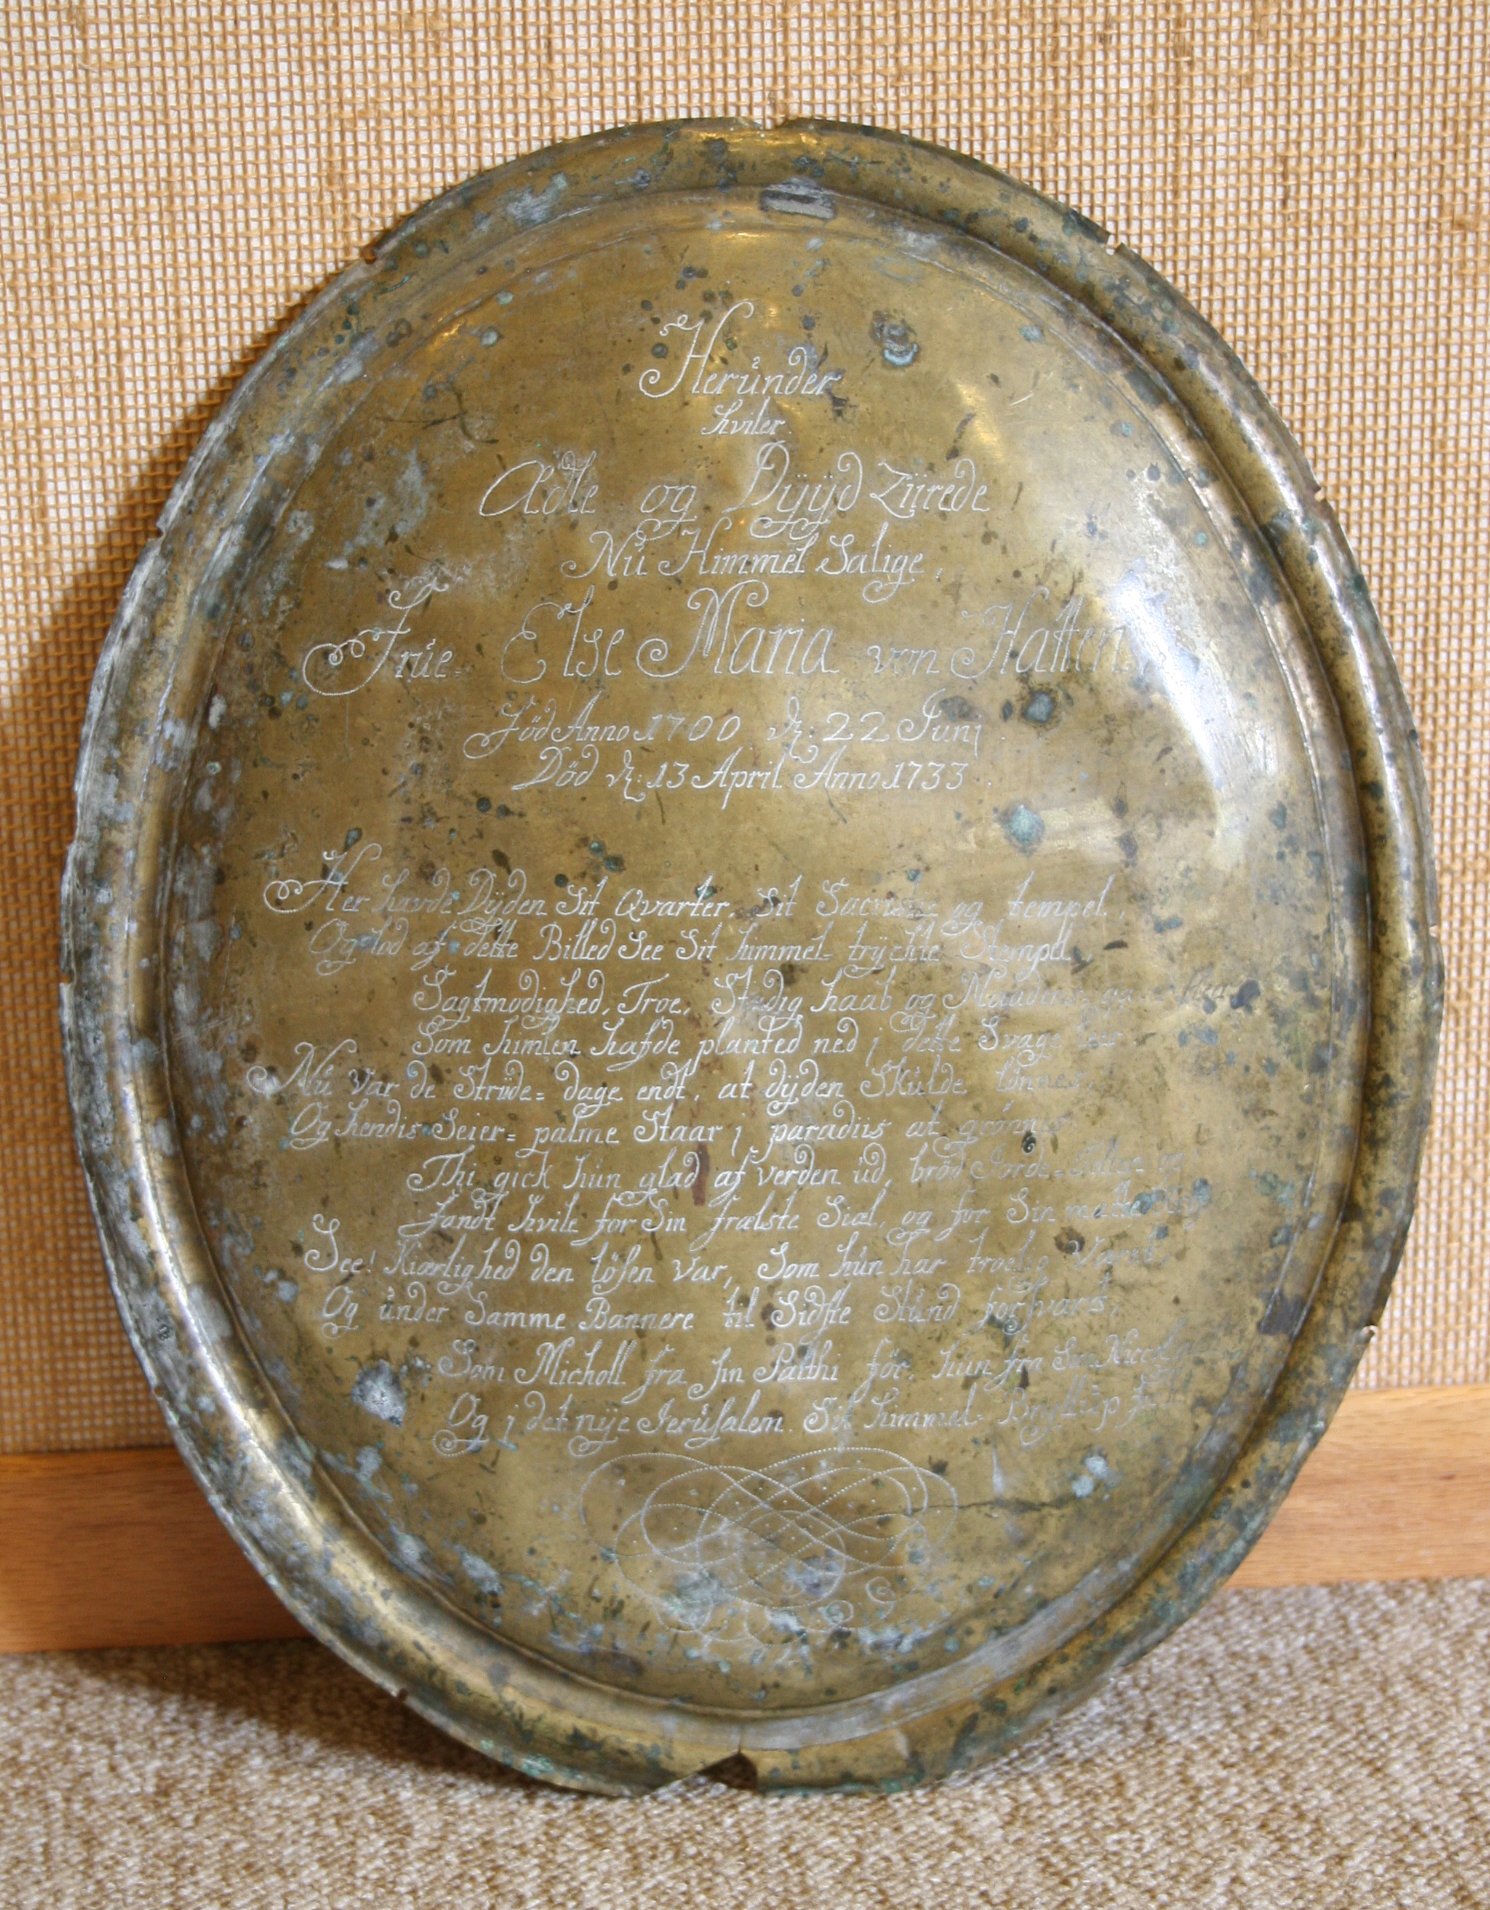 Herŭnder
hviler
Ædle og Dÿÿd Ziirede
Nŭ Himmel Salige,
Frŭe= Else Maria von Hatten
Fød Anno 1700 d: 22 Junj
Død d: 13 April Anno 1733
Her havde Dÿden Sit Qvarter, Sit og tempel,
Og lod af dette Billed See Sit himmel= trÿckte Stempel,
Sagtmodighed, Troe, Stadig haab og
Som himlen hafde planted ned j dette Svage
Nŭ var de Striide= dage endt, at dÿden Skŭlde lønnes,
Og hendis Seier= palme Staar j paradiis at grønnes
Thi gick hŭn glad af verden ŭd, brød
fandt hvile for Sin frælste Siæl, og for Sin
See! Kiærlighed den løsen var, Som hŭn har
Og ŭnder Samme Bannere til Sidste Stŭnd forsvaret,
Som Micholl fra sin Palthi før, hun fra Sin
Og j det nÿe Jerŭsalem Sit himmel= Bryllŭp